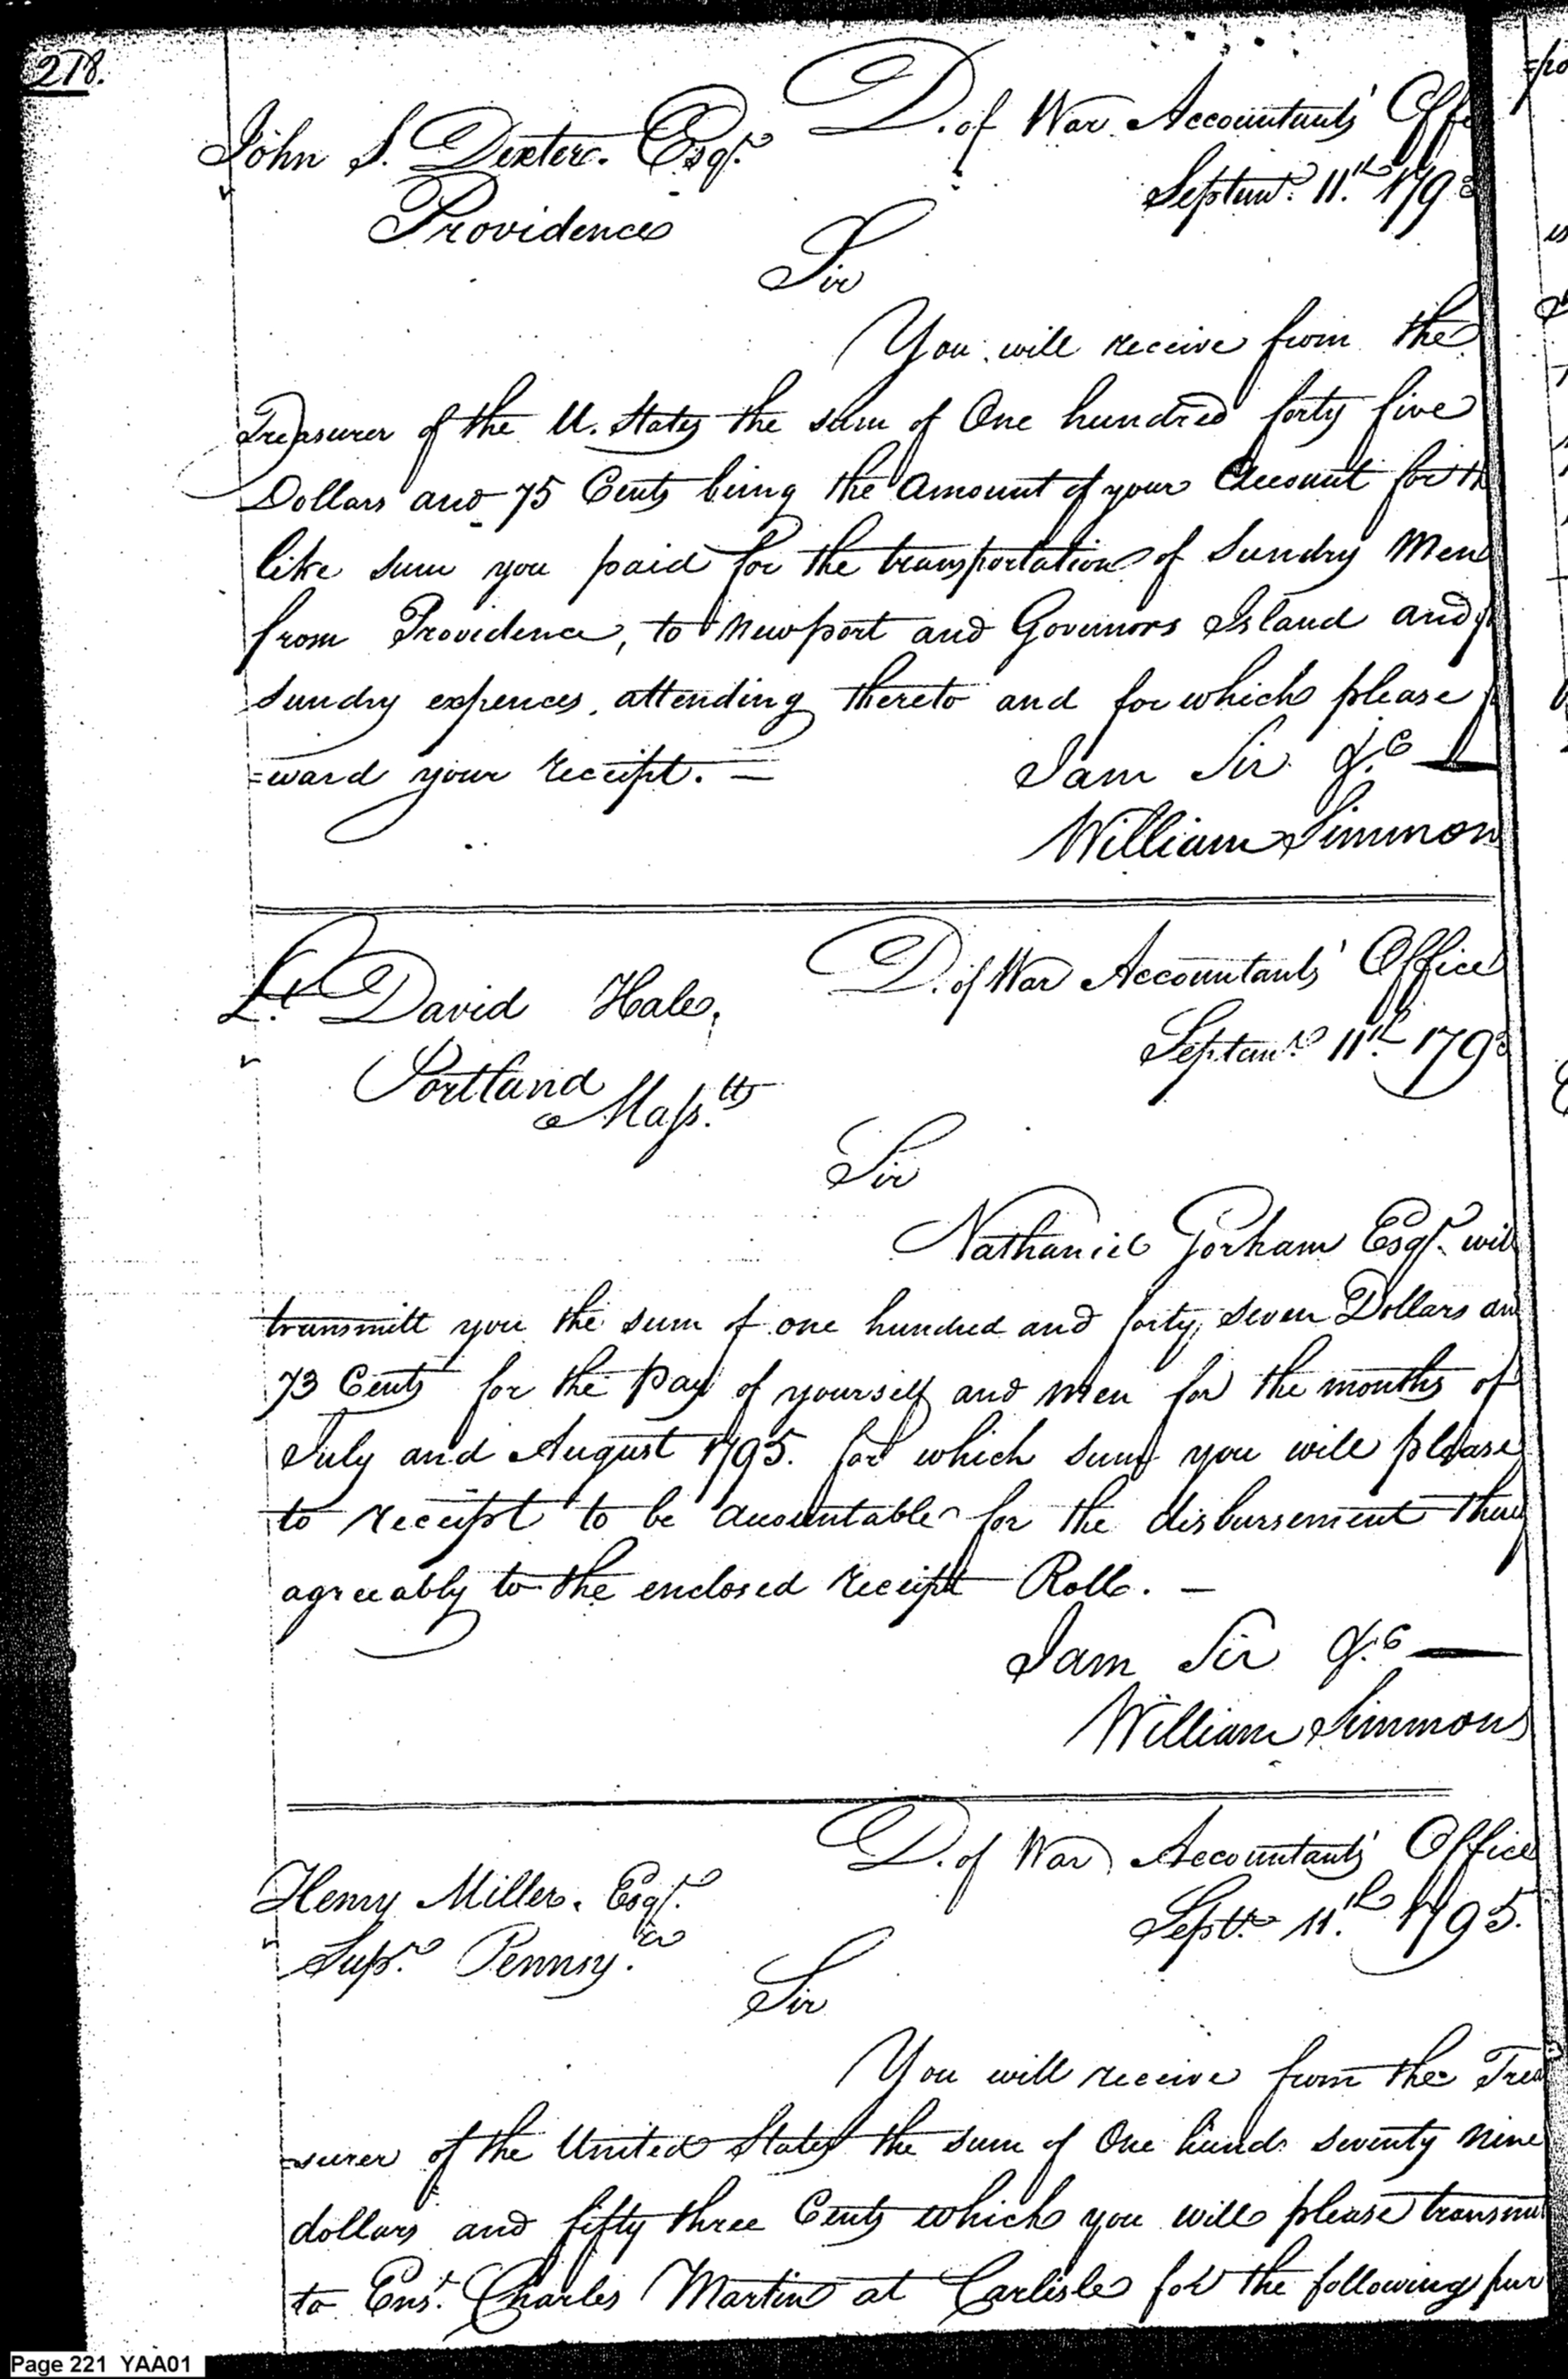 218.
D. of War Accountants' Offi
John S. Dexter. Esqr.
Septemr. 11th 179
Providence
Sir
You will receive from the
Treasurer of the U. States the sum of One hundred forty five
Dollars and 75 Cents being the Amount of your Account for th
like sum you paid for the transportation of Sundry Men
from Providence, to Newport and Governors Island and
sundry expences attending thereto and for which please
=ward your receipt. —
I am Sir &c —
William Simmon
D. of War Accountants' Office
Lt. David Hale,
Septemr. 11th 179
Portland
Massts
Sir
Nathaniel Gorham Esqr. will
transmitt you the sum of one hundred and forty seven Dollars an
73 Cents for the pay of yourself and men for the months of
July and August 1795. for which sum you will please
to receipt to be accountable for the disbursement there
agreeably to the enclosed receipt Roll. —
I am Sir &c —
William Simmons
D. of War Accountants' Office
Henry Miller. Esqr.
Septr. 11th 1795.
Supr. Pennsya.
Sir
You will receive from the Trea
=surer of the United States the sum of One hund. seventy nine
dollars and fifty three Cents which you will please transmit
to Ens. Charles Martin at Carlisle for the following pur
Page 221 YAA01